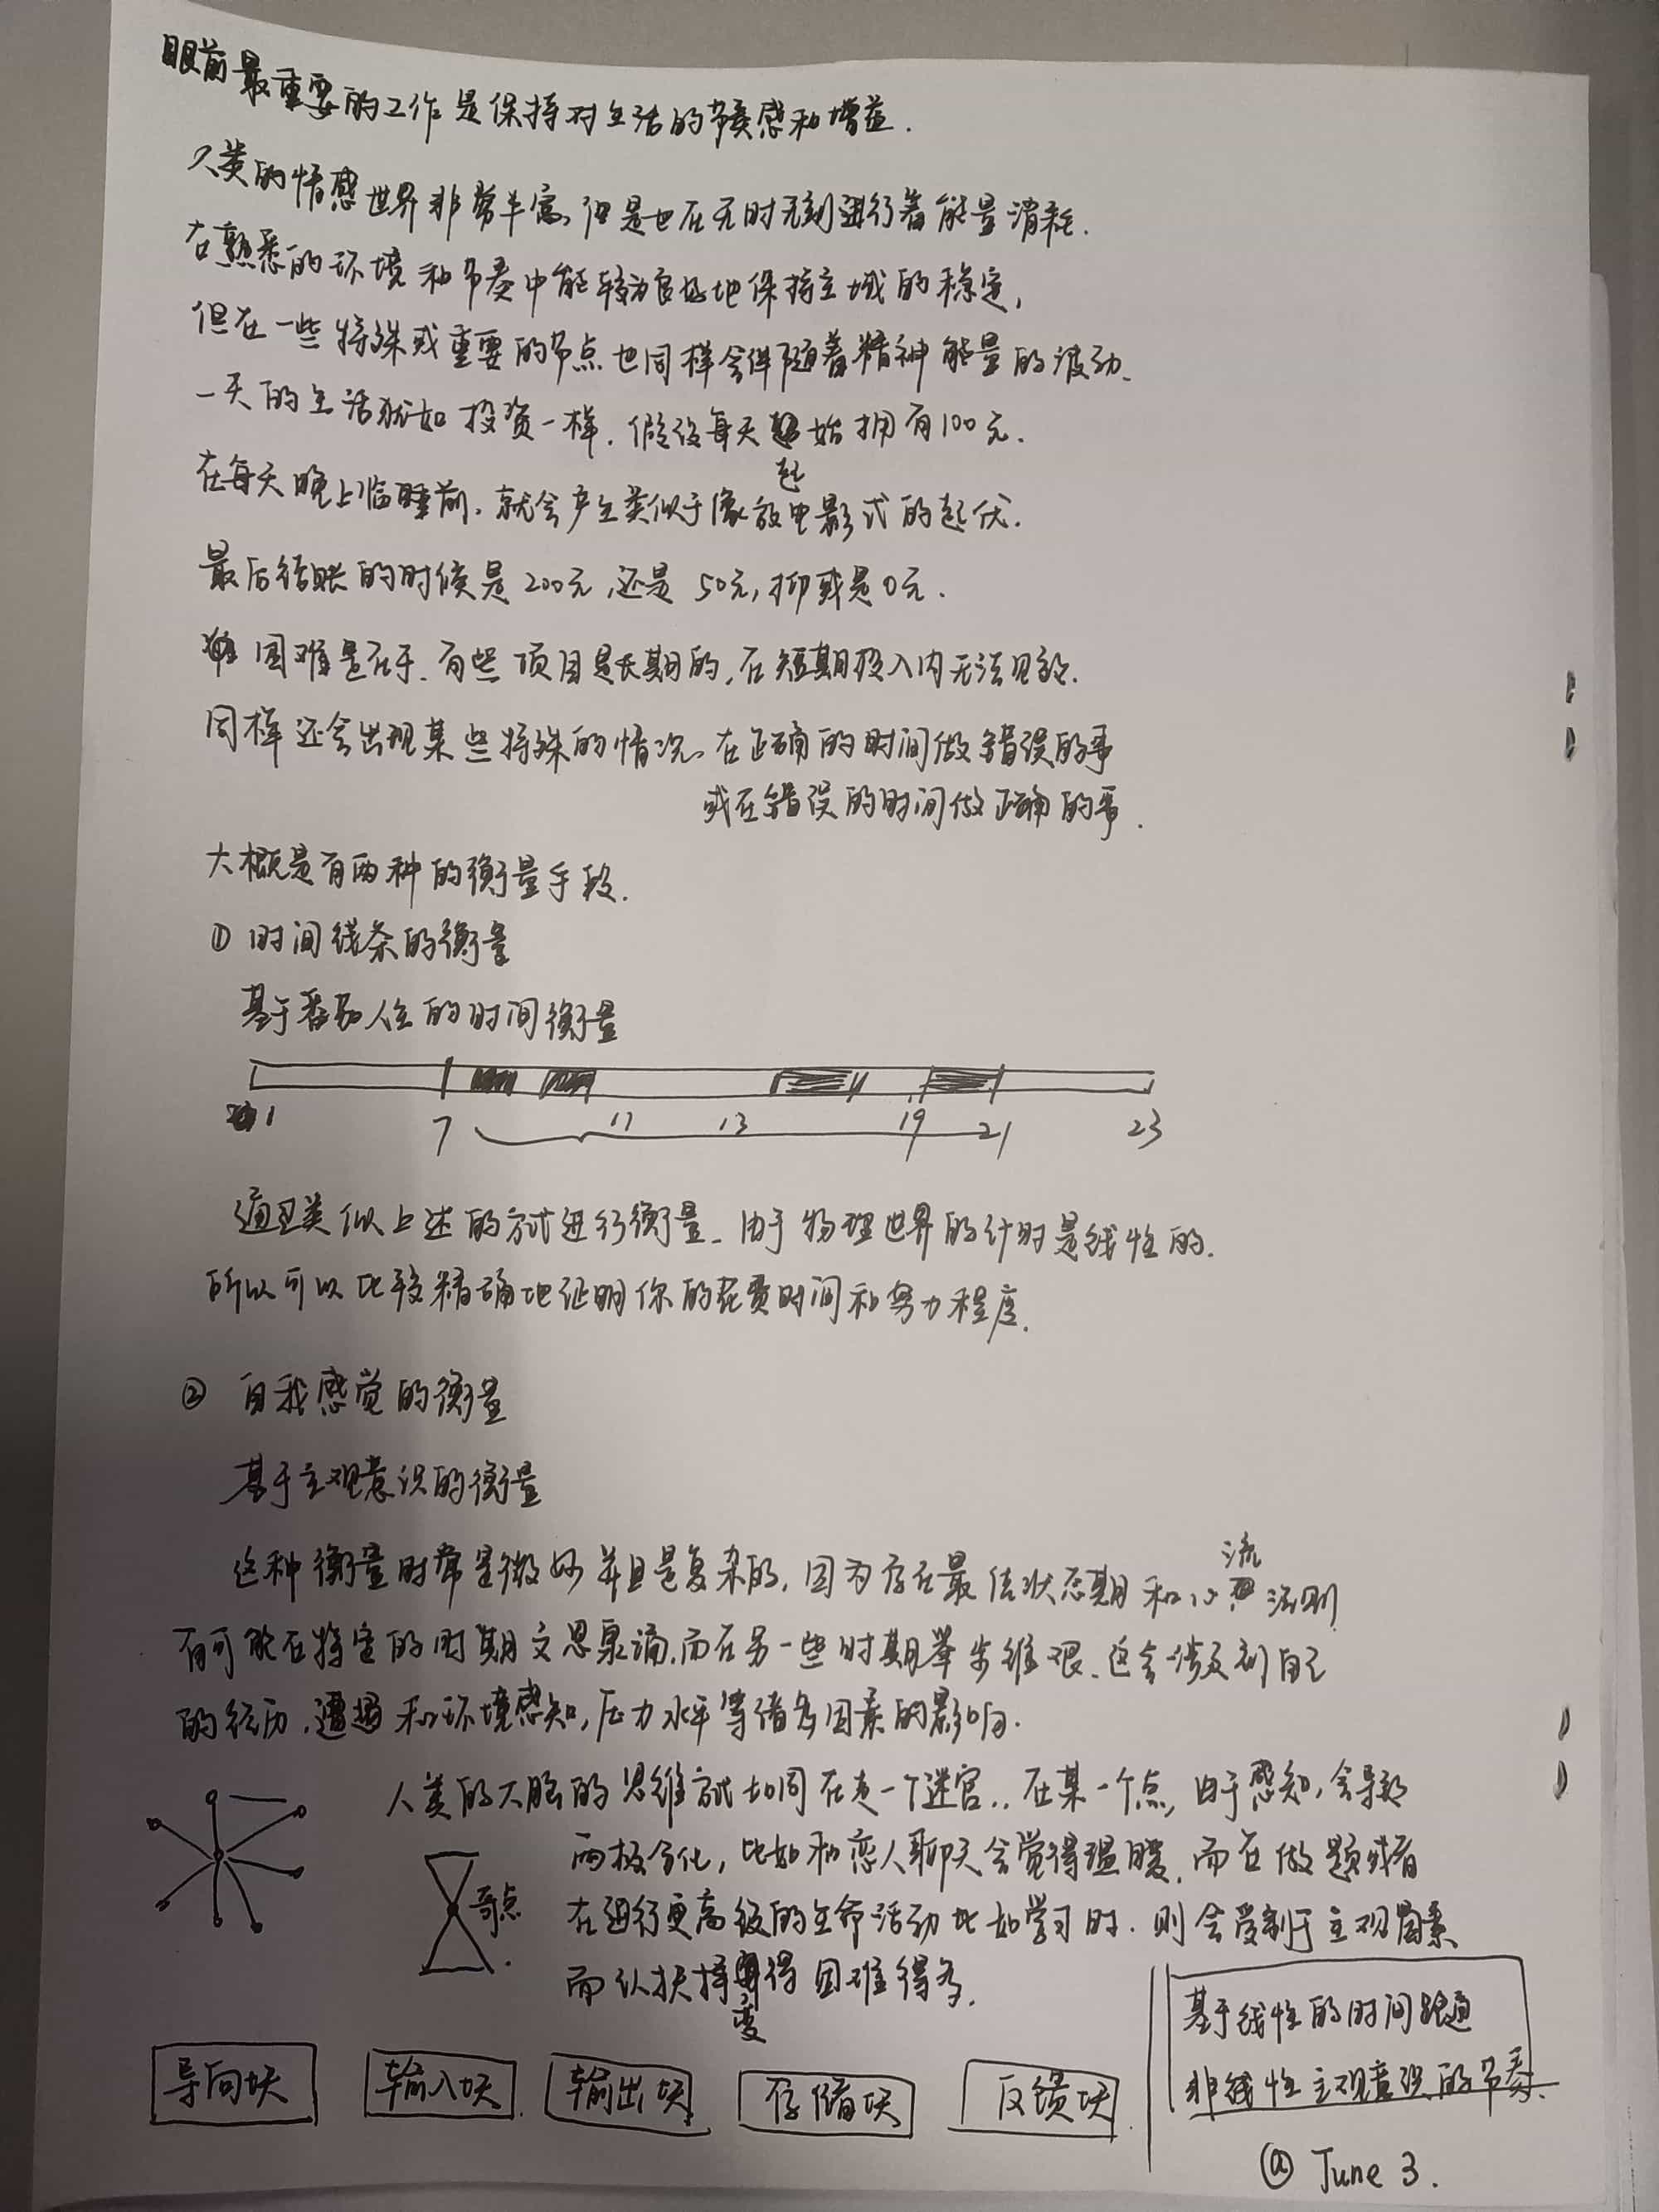 眼前最重要的工作是保持对生活的节奏感和增益.
人类的情感世界非常丰富,但是也在无时无刻进行着能量消耗.
在熟悉的环境和节奏中能较为良好地保持主域的稳定,
但在一些特殊或重要的节点也同样会伴随着精神能量的波动.
一天的生活犹如投资一样.假设每天起始拥有100元.
在每天晚上临睡前.就会产生类似于像放电影式的起伏.
最后结账的时候是200元,还是50元,抑或是0元.
困难是在于.有些项目是长期的,在短期投入内无法见效.
同样还会出现某些特殊的情况,在正确的时间做错误的事
或在错误的时间做正确的事.
大概是有两种的衡量手段.
① 时间线条的衡量
基于番茄人生的时间衡量
1 7 11 13 19 21 23
通过类似上述的方式进行衡量.由于物理世界的计时是线性的.
所以可以比较精确地证明你的花费时间和努力程度.
② 自我感觉的衡量
基于主观意识的衡量
这种衡量时常是微妙并且是复杂的,因为存在最佳状态期和心流法则
有可能在特定的时期文思泉涌,而在另一些时期举步维艰.这会涉及到自己
的经历,遭遇和环境感知,压力水平等诸多因素的影响.
人类的大脑的思维就如同在走一个迷宫..在某一个点,由于感知,会导致
两极分化,比如和恋人聊天会觉得温暖,而在做题或者
奇点
在进行更高级的生命活动比如学习时.则会受制于主观因素
而使抉择变得困难得多.
基于线性的时间跟随
非线性主观意识的节奏.
导向块 输入块 输出块 存储块 反馈块
@ June 3.